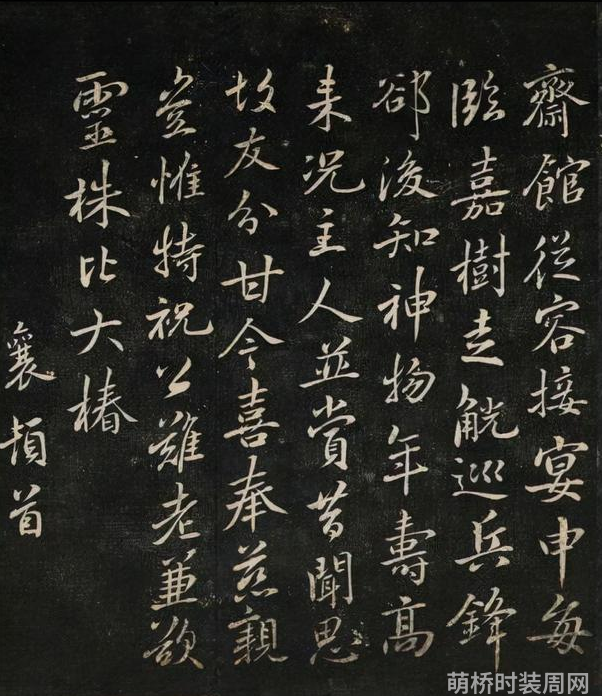 齋館從容接宴申每
臨嘉樹走觥巡兵鋒
卻後知神物年壽高
来况主人並賞昔聞思
故友分甘今喜奉慈親
豈惟特祝公難老兼欲
靈株比大椿
襄頓首
萌桥时装周网